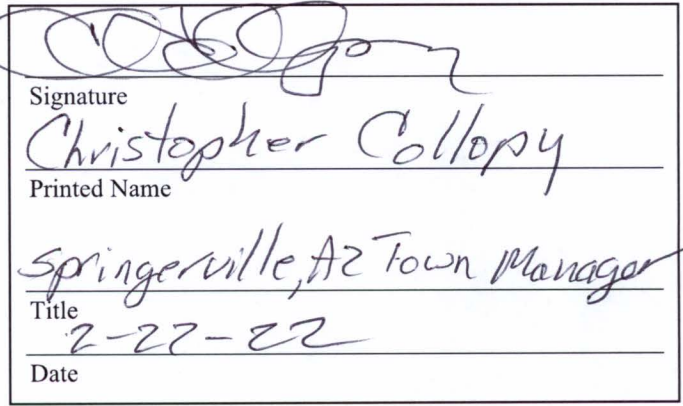 Signature
Christopher Collopy
Printed Name
Springerville, AZ Town Manager
Title
2-22-22
Date